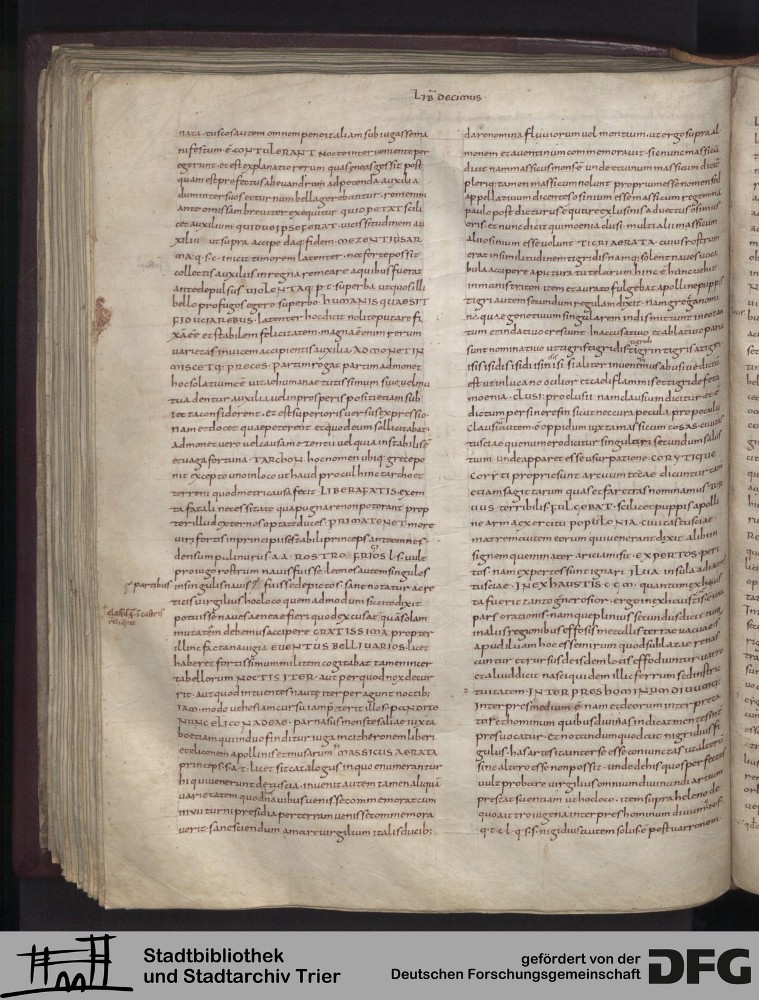 LIB decimus
nata. tuscos autem omnem pene italiam subiugasse ma
nifestum ē. CONTULERANT noctē inter venientē per
egerunt. et est explanatio rerum quas aeneas gessit post
quam est profectus ab evandrum adpetenda auxilia
dum inter suos et turnum bella gerebantur. rem enim
ante omissam breviter exequitur. QUID PETAT scili
cet auxilium. QUIDVE IPSE FERAT. vicissitudinem au
xilii. ut supra accipe daq; fidem. MEZENTIUS AR
MA. q. s. c. inicit timorem latenter.
collectis auxiliis in regna remeare a quibus fuerat
ante depulsus. VIOLENTAq. p. t. superba ut quos illi
bello profugos egere superbo. HUMANIS QUAE SIT
FIDUCIA REBUS. latenter hoc dicit noli te putare fi
et stabilem felicitatem. magna ē enim rerum
varietas invicem accipienti auxilia. ADMONET IN
MISCETq; PRECES. Partim rogat partim admonet
hoc solatium ē vitae humanae tutissimum
tua dentur auxilia vel in prosperis positi etiam sub
iecta considerent. et est superioris versus expressio.
nam et docet quae peteret et quod eum sollicitabat
admonet vero vel causa mezentii vel quia instabilis ē
et vaga fortuna. TARCHON hoc nomen ubiq; grece po
nit excepto uno in loco ut haud procul hinc tarcho et
terreni quod metri causa fecit. LIBERA FATIS. exem
ta fatali necessitate qua pugnare non poterant prop
ter illud externos optate duces. PRIMA TENET more
viri fortis in principiis est abili princeps ante omnes
densum pulvinrus a. a. ROSTRO. FRIGIOS L. S. vult
pro iugo rostrum navis fuisse. leones autem singulos
in singulis navib; fuisse depictos. sane notatur a cre
ticis virgilius hoc loco quem admodum sic cito dixit
potuisse naves aeneae fieri quod excusat qua solam
mutatem debemus accipere. GRATISSIMA propter
illinc facta navigia. EVENTUS BELLI VARIOS. licet
haberet fortissimum militem cogitabat tamen incer
tabellorum. NOCTIS ITER. aut per quod nox decur
rit. aut quod inventes nautē iter peragunt nocti b;
NUNC ELICONA DEAE. parnasus mons thessaliae iuxta
boetiam qui in duo finditur iuga
et eliconem apollinis et musarum. MASSICUS AERATA
princeps. s. a. t. licet sit catalogus in quo enumerantur
hi qui venerunt de tuscia. invenit autem tamen aliquā
varietatem quod navibus venisse commemorat cum
in VII turni presidia per terram venisse commemora
verit. sane sciendum amare virgilium italis ducib;
partibus
dare nomina fluviorum vel montium. ut ergo supra al
monem et aventinum commemoravit. sic nunc massicū
dicit nam massicus mons ē unde et unum massicum dicit
pleriq; tamen massicum nolunt proprium esse nomen sed
appellativum dicentes osinium esse massicum regem. na
paulo post dicturus ē qui rex clusinis advectus osinius
oris. et nunc dicit qui moenia clusi. multi alii massicum
alii osinium esse volunt. TIGRI AERATA. cuius rostrum
erat in similitudinem tigridis nam q; solent naves voca
bula accipere a pictura tutelarum. hinc ē
inmani s triton. item et aurato fulgebat apolline puppis
tigri autem secundum regulam dixit. nam greca nomi
na quae genetivum singularem in dis mittunt
tum et in dativo crescunt. In accusativo et ablativo paria
sunt nominativo ut
est ut in lucano ocior et caedi flammis et tigride feta
moenia. CLUSI: produsii. nam clusium dicitur. et ē
dictum per sineresin sicut nec cura peculi pro peculii
clusium autem. ē oppidum iuxta massicum cosas. civitas
tusciae que numero dicitur singulari secundum salus
tium. unde apparet esse usurpatione. CORYTIQUE
coryti proprie sunt arcuum tecae dicuntur tam
etiam sagittarum quas et faretras nominamus.
TORVUS. terribilis. FULGEBAT. scilicet puppis apolli
ne arma exercitu. POPULONIA. civitas tusciae.
matrem cuitem eorum qui venerant dixit. alibi in
signem quem mater aricia misit. EXPERTOS. peri
tos. nam expertes sunt ignari. ILVA insula adiacens
tusciae. INEXHAUSTIS c. c. m. quantum exhausta
ta fuerit tanto generosior. ergo inexhaustis
pars orationis. namque plinius secundus dicit cum
in aliis regionibus effossi metallis terrae vacuae s
apud ilvam hoc esse mirum quod sublatae renas
cuntur et rursus de isdem locis effodiuntur. varro
et aliud dicit nasci quidem illic ferrum sed in stric
tura cogi. INTERPRES HOMINUM DIVUMq;
interpres medium ē. nam et deorum interpreta
tor et hominum quibus divinas indicat mentes sint
presvocatur. et notandum quod ait nigridius
gulus. has artes ita inter se esse coniunctas ut altera
sine altero esse non possit. unde de his quos perfectos
vult probare virgilius omnium divinandi artium
prestat scientiam ut hoc loco. item supra heleno de
quo ait troiugena interpres hominum divum N. F.
q. t. c. l. q. s. s. nigidius autem solus ē post varronem
Stadtbibliothek
und Stadtarchiv Trier
gefördert von der
Deutschen Forschungsgemeinschaft
DFG